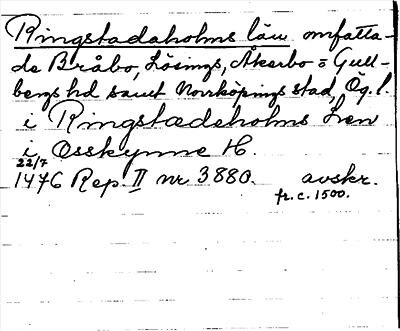 Ringstadaholms län omfatta-
de Bråbo, Lösings, Åkerbo o Gull-
bergs hd samt Norrköpings stad, Ög. l.
i Ringstædeholms Len
i Osskynne H.
22/7
1476 Rep. II nr 3880. avskr.
fr. c. 1500.